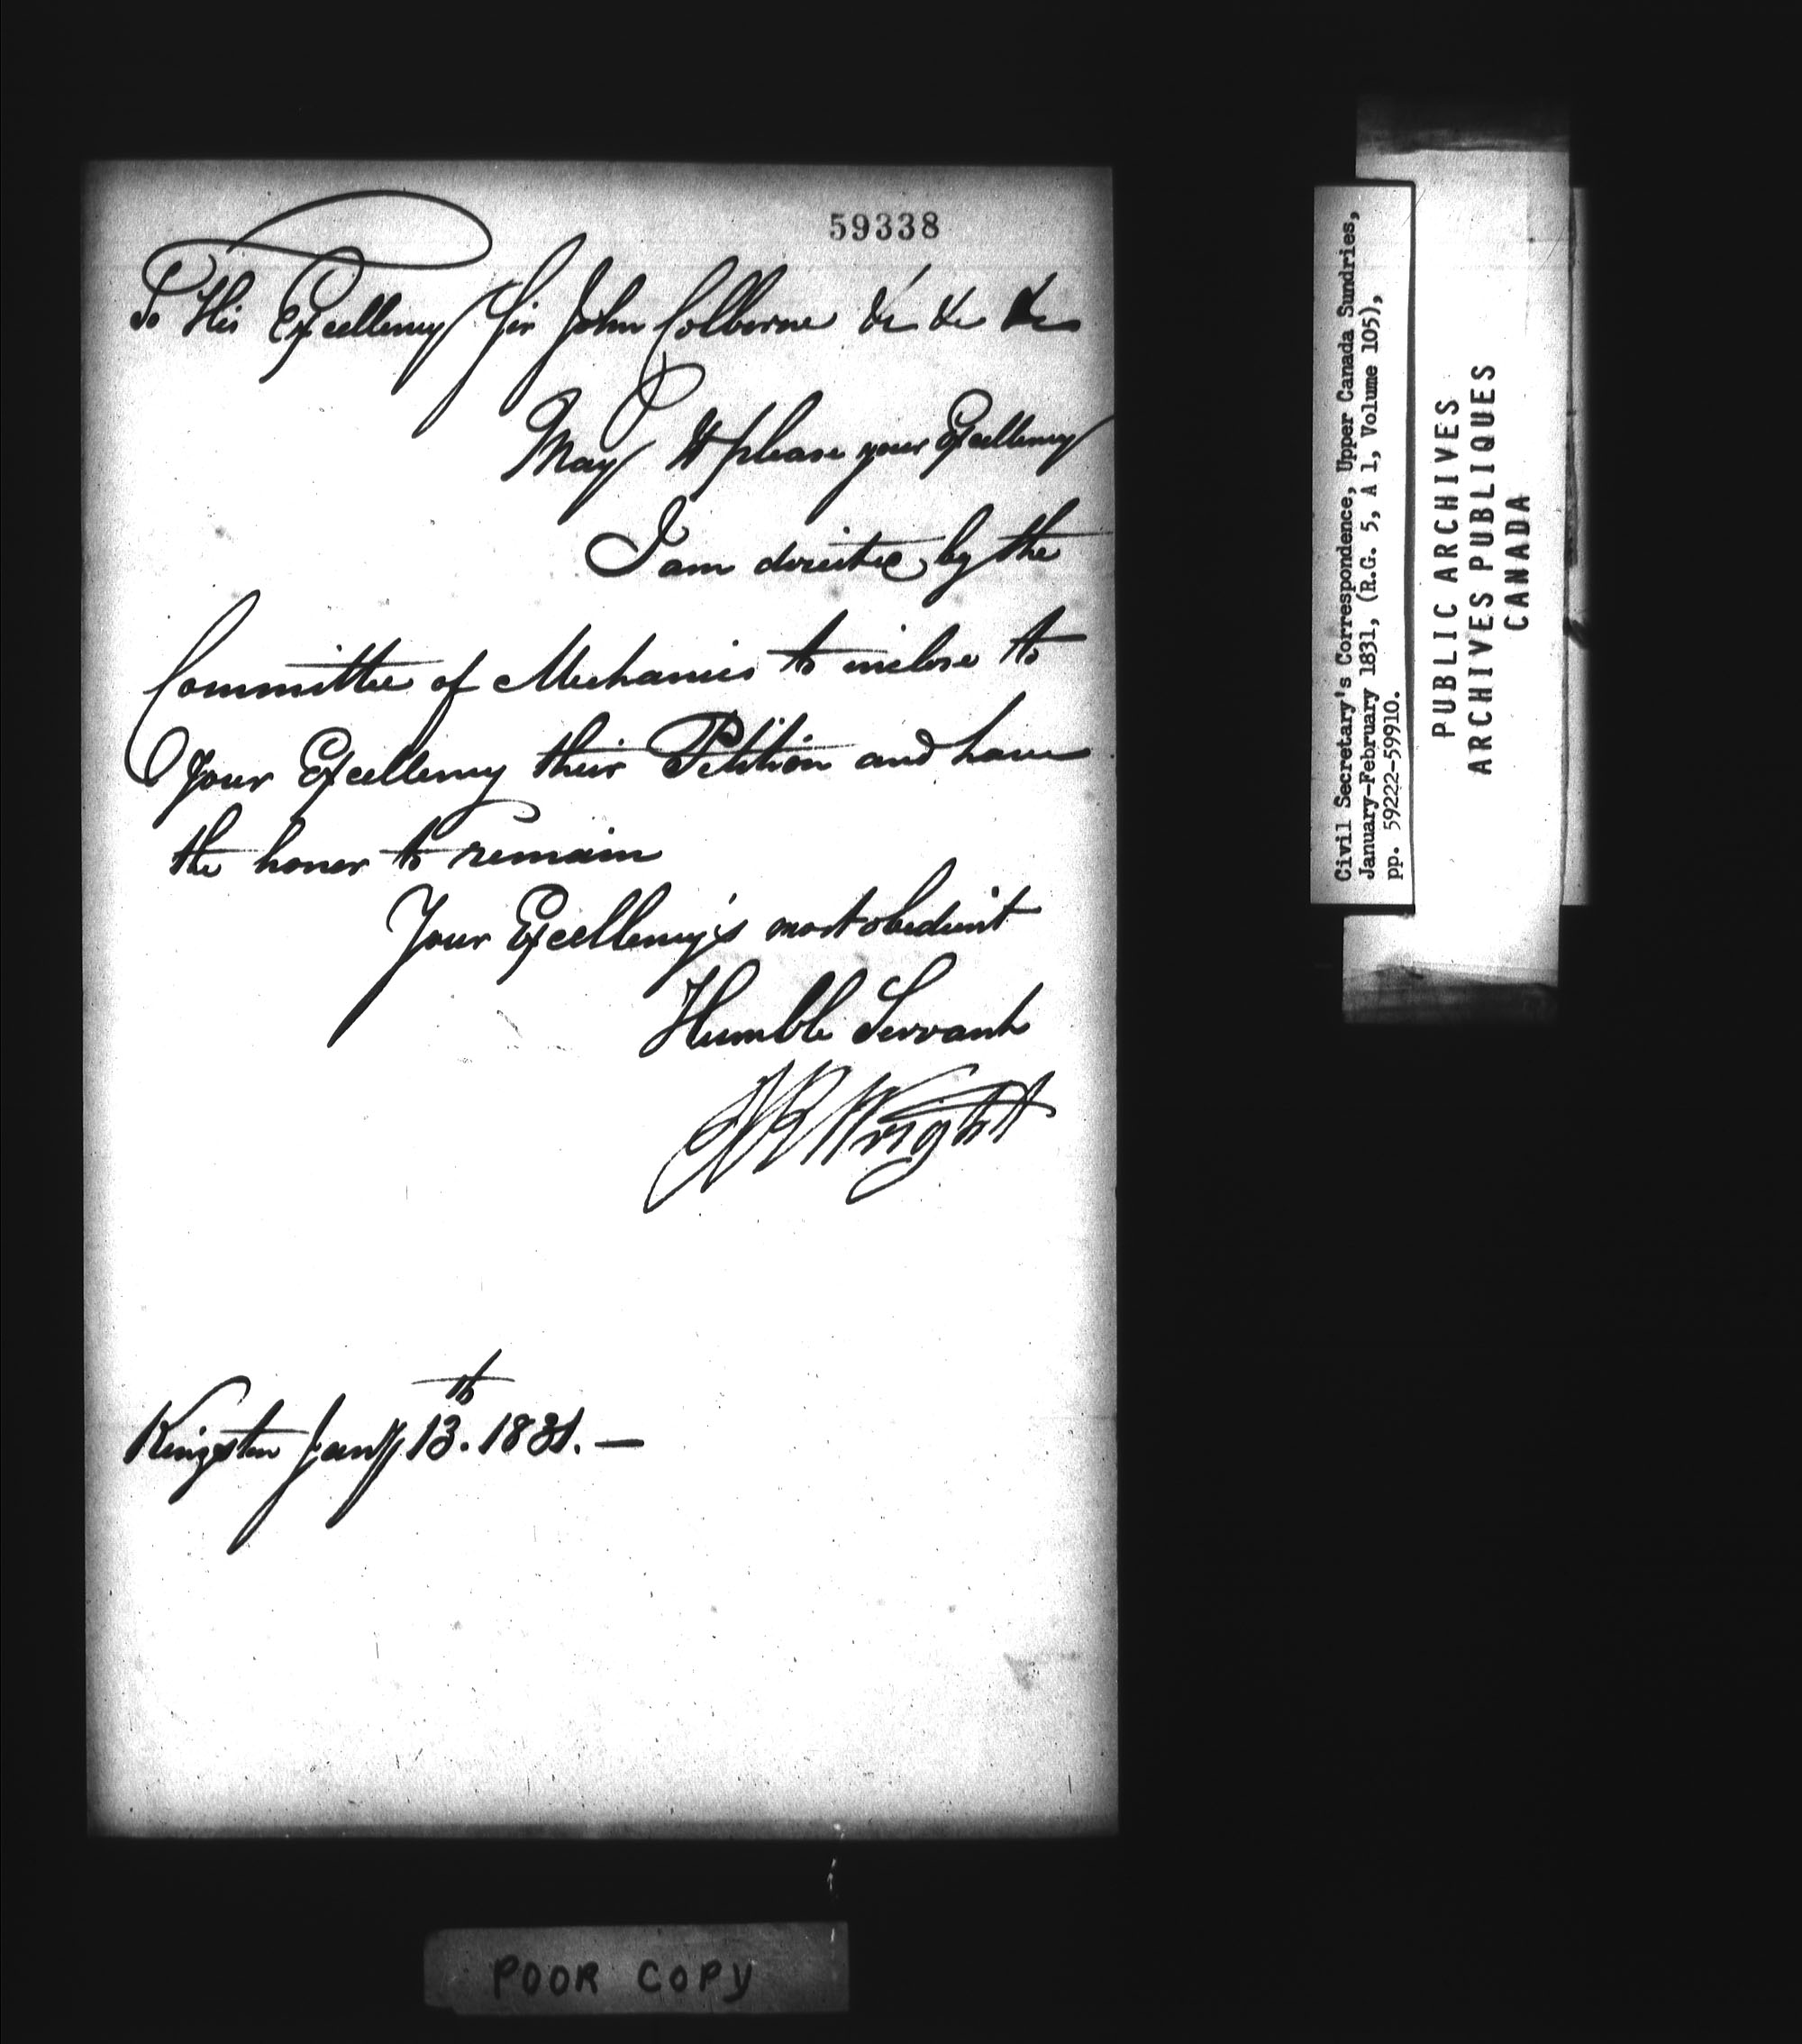 59338
To His Excellency Sir John Colborne &c &c &c
May It please your Excellency
I am directed by the
Committee of Mechanics to inclose to
Your Excellency their Petition and have
the honor to remain
Your Excellency's most obedient
Humble Servant
Wright
Kingston Jany 13th. 1831. —
Civil Secretary's Correspondence, Upper Canada Sundries,
January-February 1831, (R.G. 5, A 1, Volume 105),
pp. 59222-59910.
PUBLIC ARCHIVES
ARCHIVES PUBLIQUES
CANADA
POOR COPY